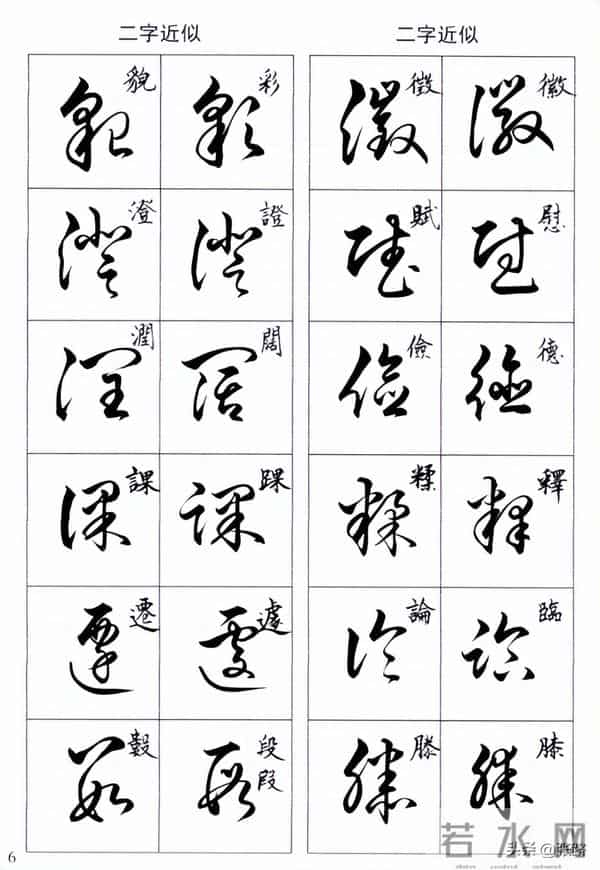 二字近似 二字近似
貌 彩 徵 徽
澄 證 賦 慰
潤 闊 儉 德
課 踝 糅 釋
遷 遽 論 臨
段 滕 膝
叚
6
若水网
头条